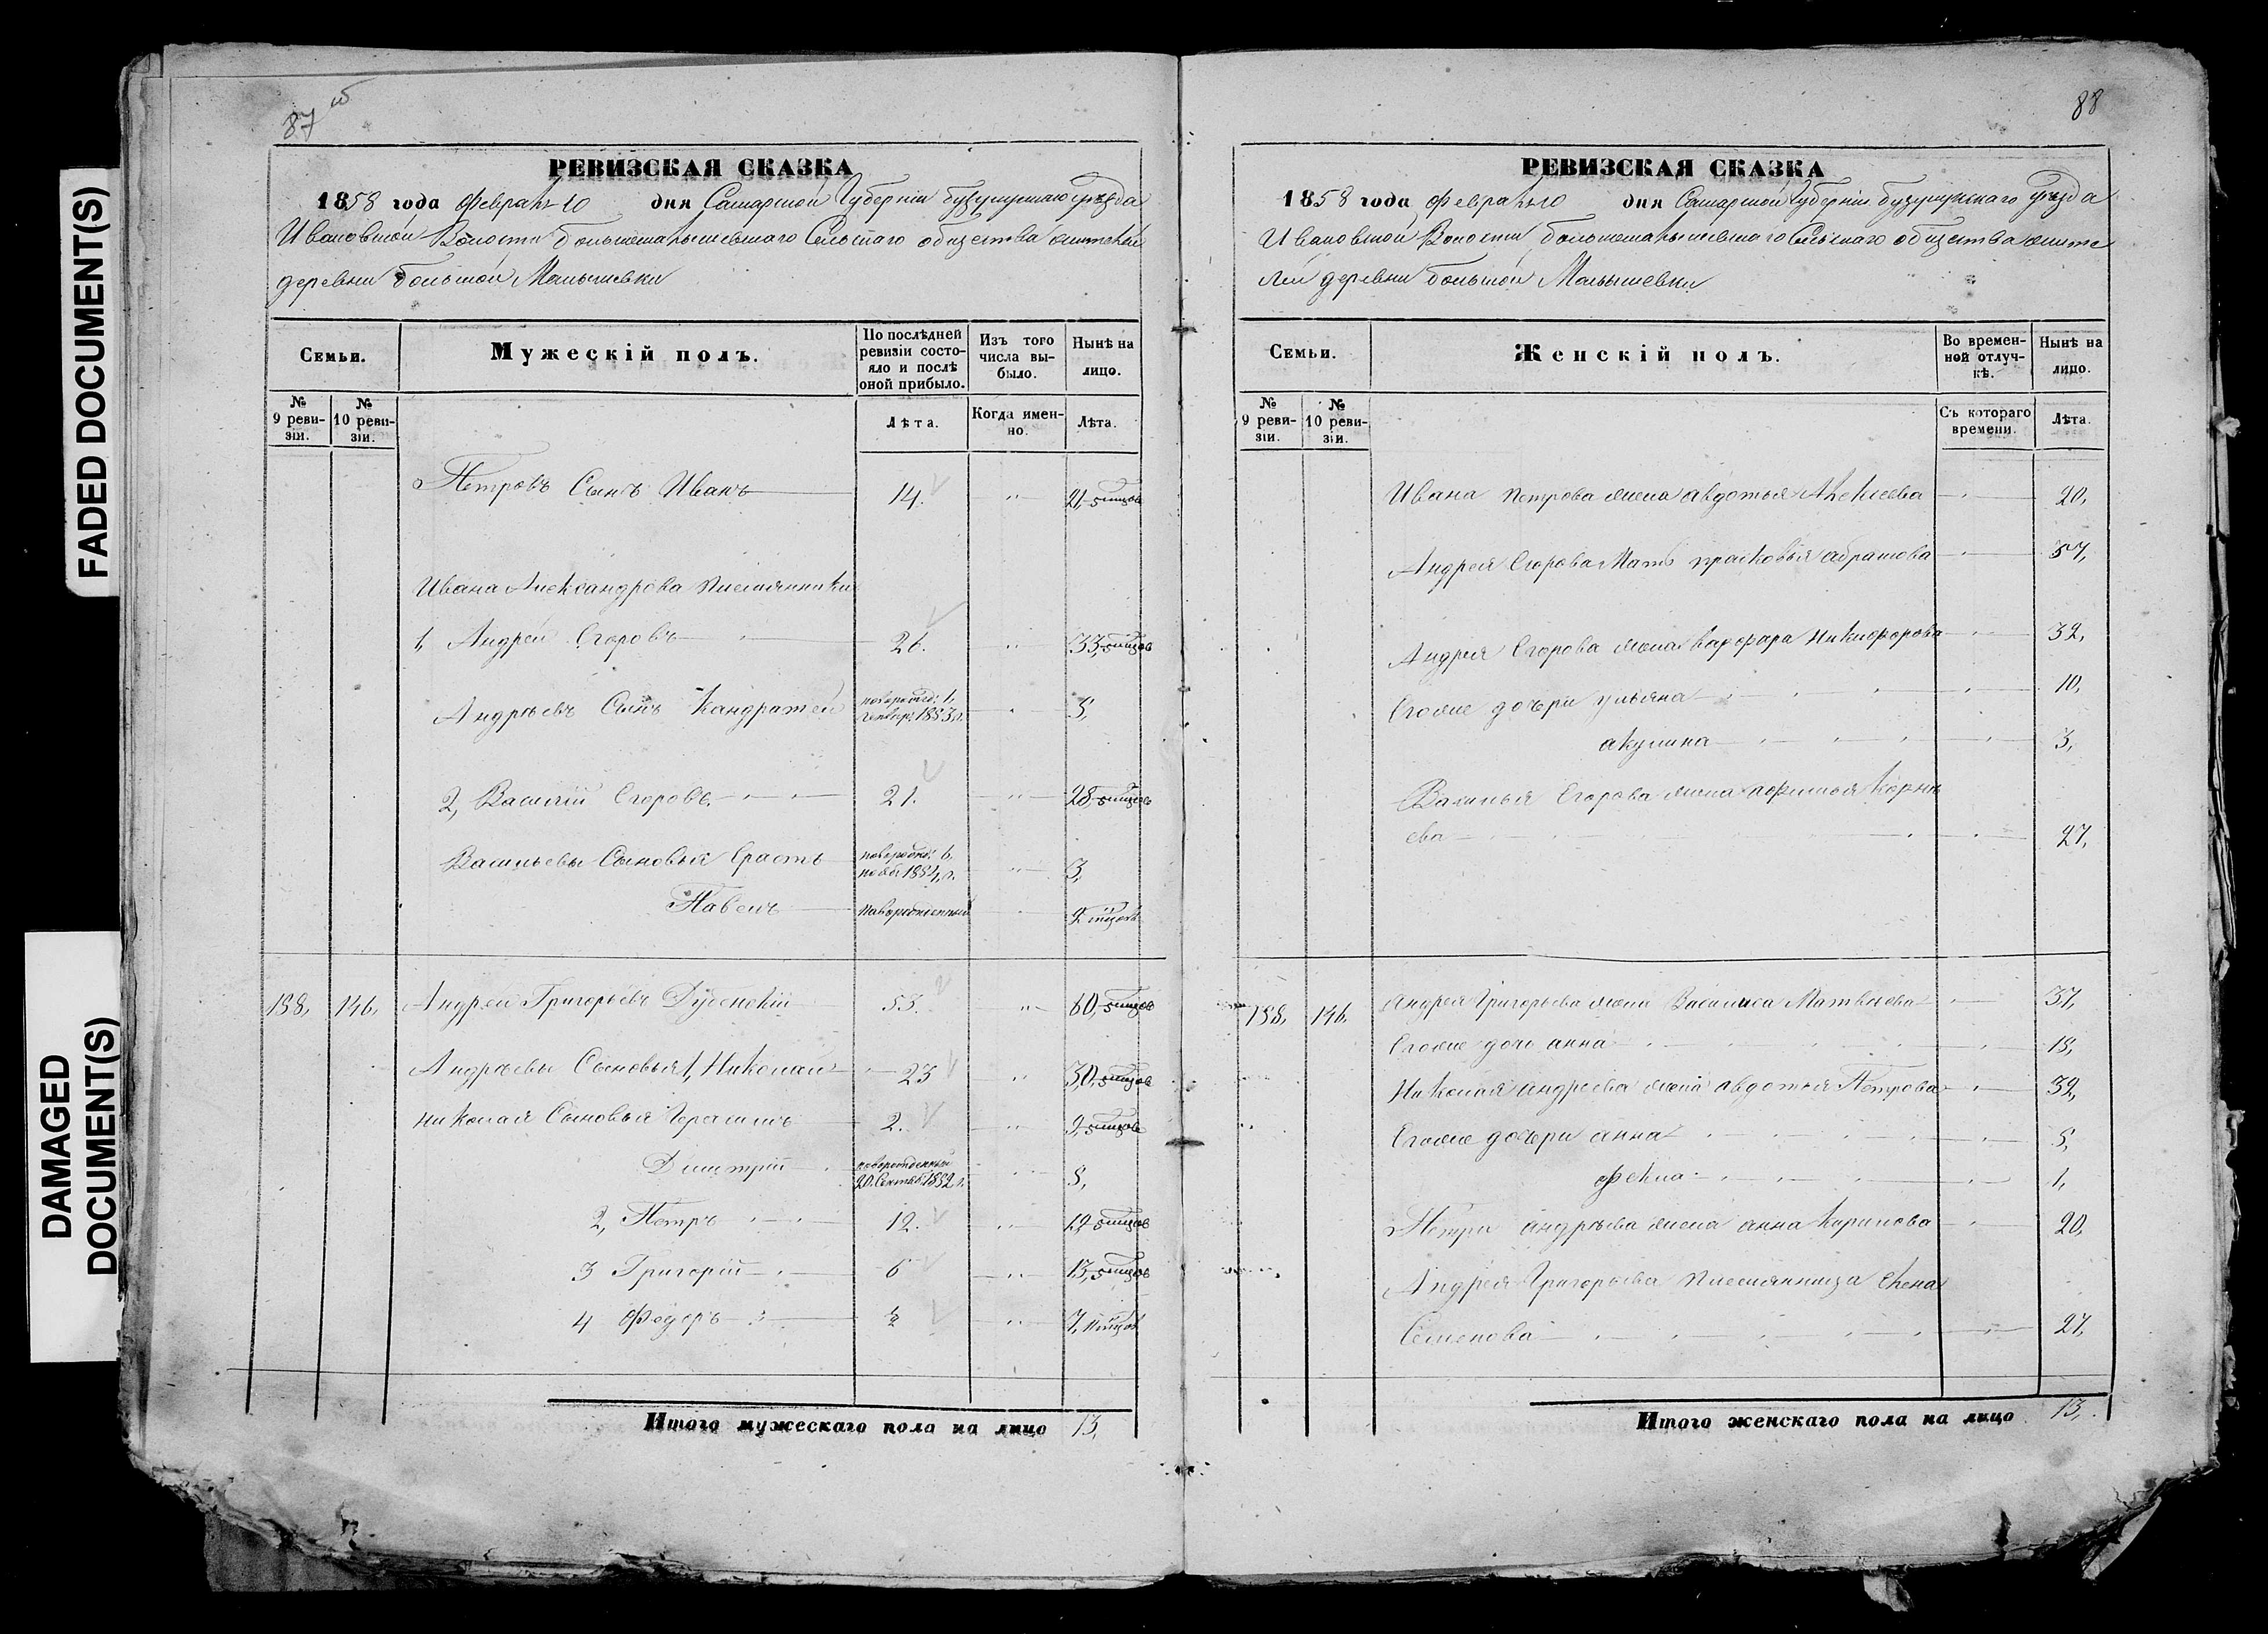 FADED DOCUMENT(S)
DAMAGED
DOCUMENT(S)
87 об
РЕВИЗСКАЯ СКАЗКА
1858 года Февраля 10 дня Самарской Губерніи бузулукскаго уѣзда
Ивановской Волости большемалышевскаго Сельскаго общества жителей
деревни большой Малышевки
Семьи.
Мужескій полъ.
По послѣдней ревизіи состояло и послѣ оной прибыло.
Изъ того числа выбыло.
Нынѣ на лицо.
№ 9 ревизіи.
№ 10 ревизіи.
Лѣта.
Когда именно.
Лѣта.
Петровъ Сынъ Иванъ 14. " 21,
Ивана Александрова племянники
1, Андрей Егоровъ 26. " 33,
Андреевъ Сынъ Кандратей 1853 г. 5,
2, Василій Егоровъ 21. " 28
Васильевы Сыновья Ерастъ 3,
Павелъ новорожденный
138, 146, Андрей Григорьевъ 53. " 60,
Андреевы Сыновья 1, Николай 23 " 30,
Николая Сыновья Герасимъ 2. " 9,
Дмитрій новорожденный 20. Сентяб. 1852 г. 5,
2, Петръ 12. " 19
3 Григорій 6 " 13,
4 Федоръ " 7,
Итого мужескаго пола на лицо 13,
88
РЕВИЗСКАЯ СКАЗКА
1858 года Февраля 10 дня Самарской Губерніи бузулукскаго уѣзда
Ивановской Волости большемалышевскаго Сельскаго общества жите
лей деревни большой Малышевки
Семьи.
Женскій полъ.
Во временной отлучкѣ.
Нынѣ на лицо.
№ 9 ревизіи.
№ 10 ревизіи.
Съ котораго времени.
Лѣта.
Ивана Петрова жена авдотья Алексеева 20,
Андрея Егорова Мать прасковья абрамова 57,
Андрея Егорова жена Никифорова 32,
Егоже дочери ульяна 10,
акулина 3,
Василья Егорова жена Корне
ева 27,
138, 146, Андрея Григорьева жена Василиса Матвѣева 37,
Егоже дочь анна 18,
Николая андреева жена авдотья Петрова 32,
Егоже дочери анна 5,
фекла 1,
Петра андреева жена анна Кирилова 20,
Андрея Григорьева племянница Елена
Семенова 27,
Итого женскаго пола на лицо 13,